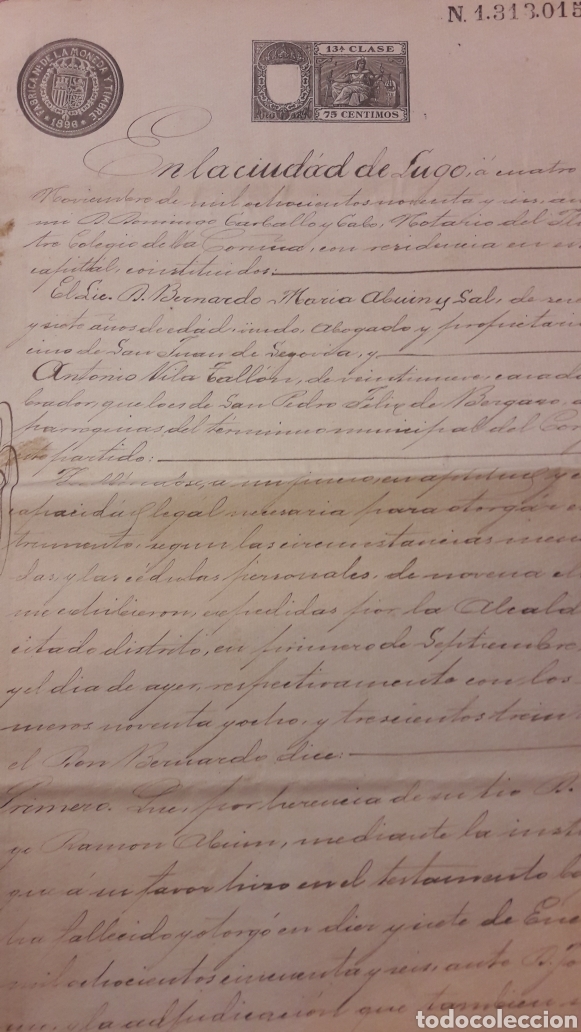 N. 1.313.015
FABRICA NAL DE LA MONEDA Y TIMBRE
* 1896 *
13ª CLASE
75 CENTIMOS
En la ciudad de Lugo, á cuatro
Noviembre de mil ochocientos noventa y seis, an
mi D. Domingo Carballo y Cabo, Notario del Ilus
tro Colegio de la Coruña, con residencia en es
capital, constituidos:
El Lic. D. Bernardo Maria Abuin y Sal, de sese
y siete años de edad, viudo, Abogado y propietari
cino de San Juan de Segovia, y
Antonio Vila Tallón, de veintinueve, casado
brador, que lo es de San Pedro Felix de
parroquias del término municipal del Cor
partido:
a mi juicio, en aptitud y
capacidad legal necesaria para otorgar e
trumento, segun las circunstancias
das, y las cédulas personales, de novena cl
me exhibieron, expedidas por la Alcald
citado distrito, en primero de Septiembre,
y el dia de ayer, respectivamente con los
meros noventa y ocho, y trescientos trein
el Don Bernardo dice:
Primero. Que, por herencia de su tio D.
Ramon Abuin, mediante la inst
que á su favor hizo en el testamento
fallecido y otorgó en diez y siete de Ene
mil ochocientos cincuenta y seis, ante D. Jo
y la adjudicación que tambien
todocoleccion